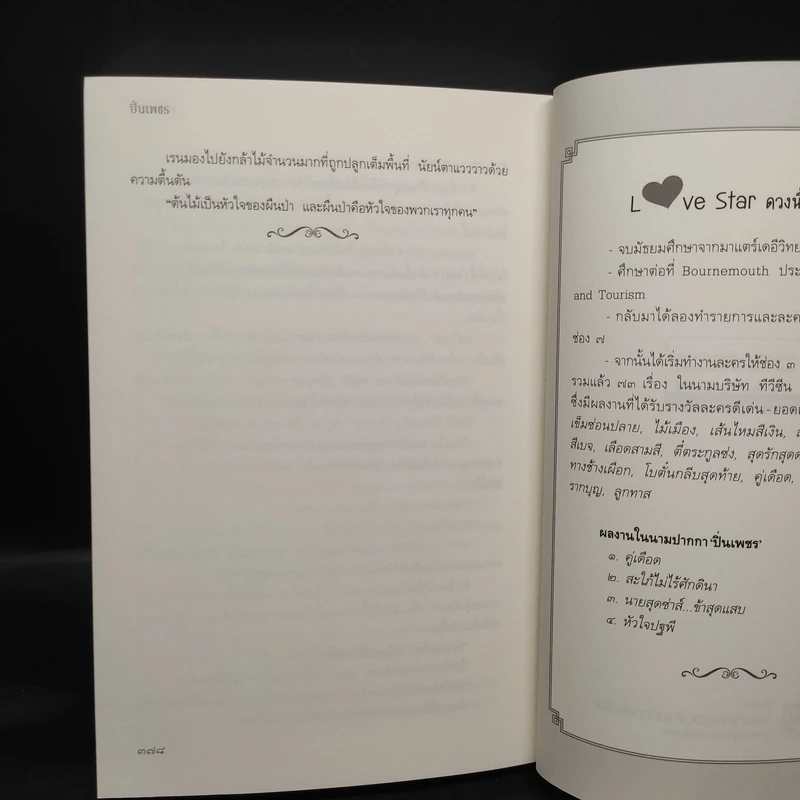 ปิ่นเพชร
เรนมองไปยังกล้าไม้จำนวนมากที่ถูกปลูกเต็มพื้นที่ นัยน์ตาแวววาวด้วย
ความตื้นตัน
“ต้นไม้เป็นหัวใจของผืนป่า และผืนป่าคือหัวใจของพวกเราทุกคน”
๓๗๘
L❤ve Star ดวงนี้
- จบมัธยมศึกษาจากมาแตร์เดอีวิทย
- ศึกษาต่อที่ Bournemouth ประ
and Tourism
- กลับมาได้ลองทำรายการและละค
ช่อง ๗
- จากนั้นได้เริ่มทำงานละครให้ช่อง ๓
รวมแล้ว ๗๓ เรื่อง ในนามบริษัท ทีวีซีน
ซึ่งมีผลงานที่ได้รับรางวัลละครดีเด่น - ยอด
เข็มซ่อนปลาย, ไม้เมือง, เส้นไหมสีเงิน,
สีเบจ, เลือดสามสี, ตี๋ตระกูลซ่ง, สุดรักสุดด
ทางช้างเผือก, โบตั๋นกลีบสุดท้าย, คู่เดือด,
รากบุญ, ลูกทาส
ผลงานในนามปากกา ‘ปิ่นเพชร’
๑. คู่เดือด
๒. สะใภ้ไม่ไร้ศักดินา
๓. นายสุดซ่าส์...ข้าสุดแสบ
๔. หัวใจปฐพี